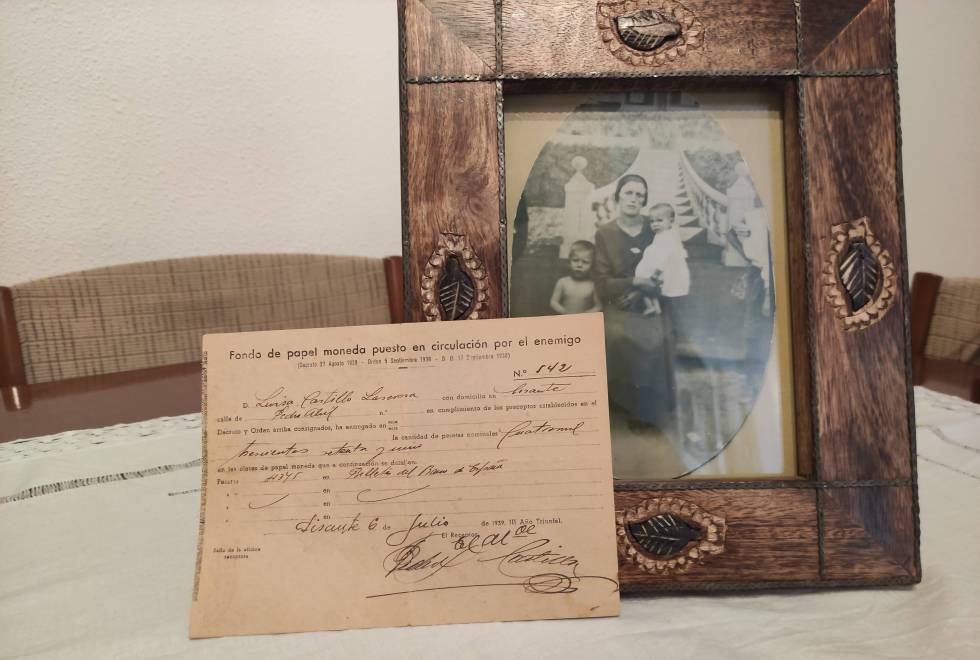 Fondo de papel moneda puesto en circulación por el enemigo
(Decreto 27 Agosto 1938 - Orden 5 Septiembre 1938 - B. O. 17 Septiembre 1938)
N.º 542
D. Luisa Castillo con domicilio en Sisante
calle de Pedro n.º en cumplimiento de los preceptos establecidos en el
Decreto y Orden arriba consignados, ha entregado en la cantidad de pesetas nominales Cuatromil
trescientos setenta y cinco
en las clases de papel moneda que a continuación se detallan:
Pesetas 4375 en Billetes del Banco de España
» » en
» » en
» » en
Sisante 6 de Julio de 1939. III Año Triunfal.
El Receptor,
Sello de la oficina
receptora
Castillo